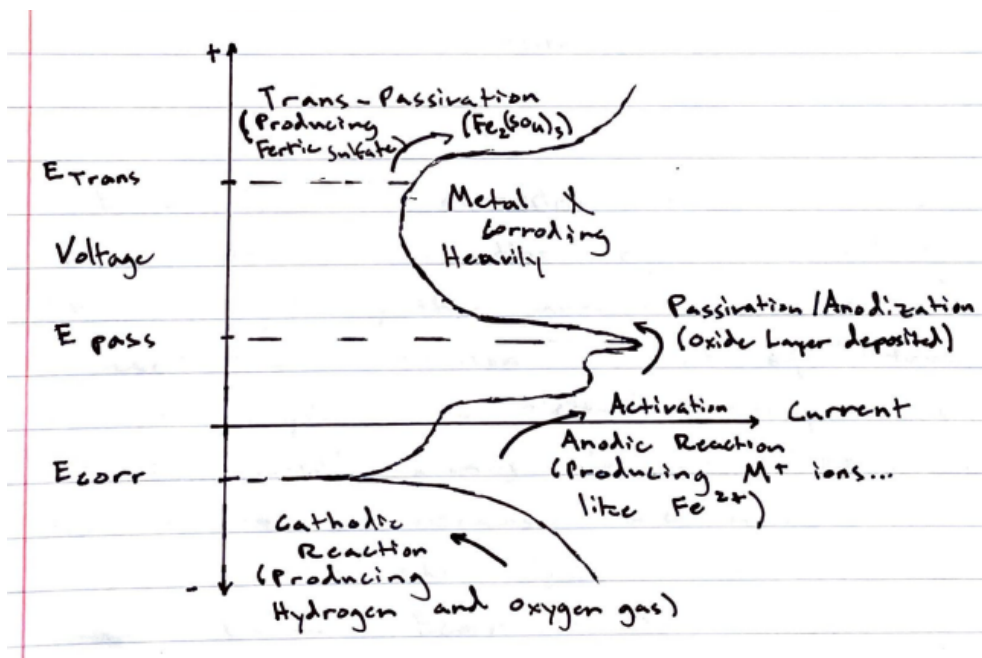 +
Trans-Passivation
(Producing
Ferric Sulfate)
(Fe₂(SO₄)₃)
E Trans
Metal X
Corroding
Heavily
Voltage
Passivation/Anodization
(Oxide Layer deposited)
E pass
Activation
Current
Anodic Reaction
(Producing M⁺ ions...
like Fe²⁺)
Ecorr
Cathodic
Reaction
(Producing
Hydrogen and oxygen gas)
-